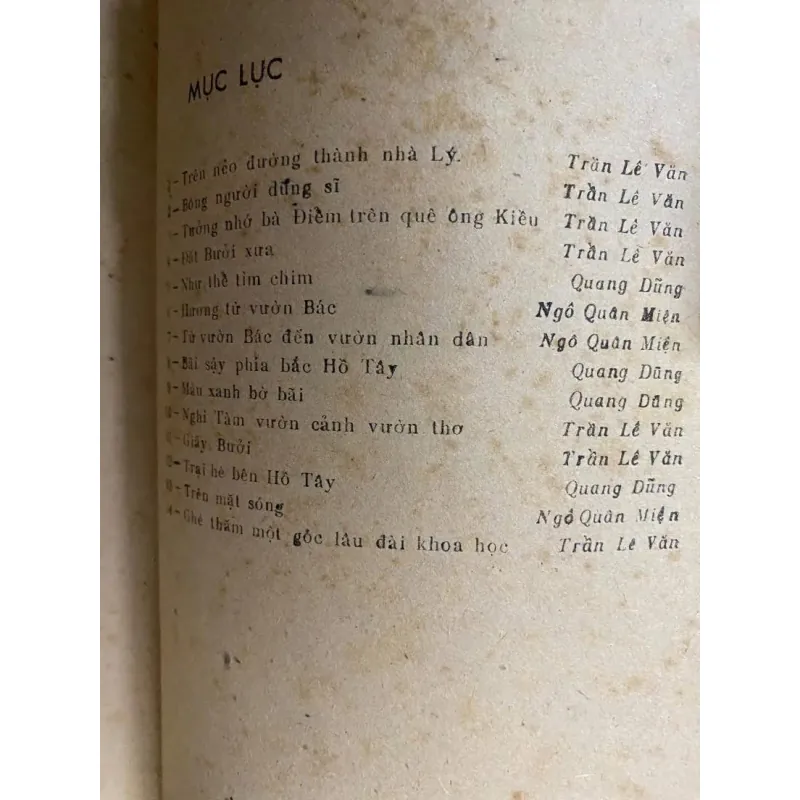 MỤC LỤC
1-Trên nẻo đường thành nhà Lý. Trần Lê Văn
2-Bóng người dũng sĩ Trần Lê Văn
3-Tưởng nhớ bà Điểm trên quê ông Kiều Trần Lê Văn
4-Đất Bưởi xưa Trần Lê Văn
5-Như thể tìm chim Quang Dũng
6-Hương từ vườn Bác Ngô Quân Miện
7-Từ vườn Bác đến vườn nhân dân Ngô Quân Miện
8-Bãi sậy phía bắc Hồ Tây Quang Dũng
9-Màu xanh bờ bãi Quang Dũng
10-Nghi Tàm vườn cảnh vườn thơ Trần Lê Văn
11-Giấy Bưởi Trần Lê Văn
12-Trại hè bên Hồ Tây Quang Dũng
13-Trên mặt sóng Ngô Quân Miện
14-Ghé thăm một góc lâu đài khoa học Trần Lê Văn